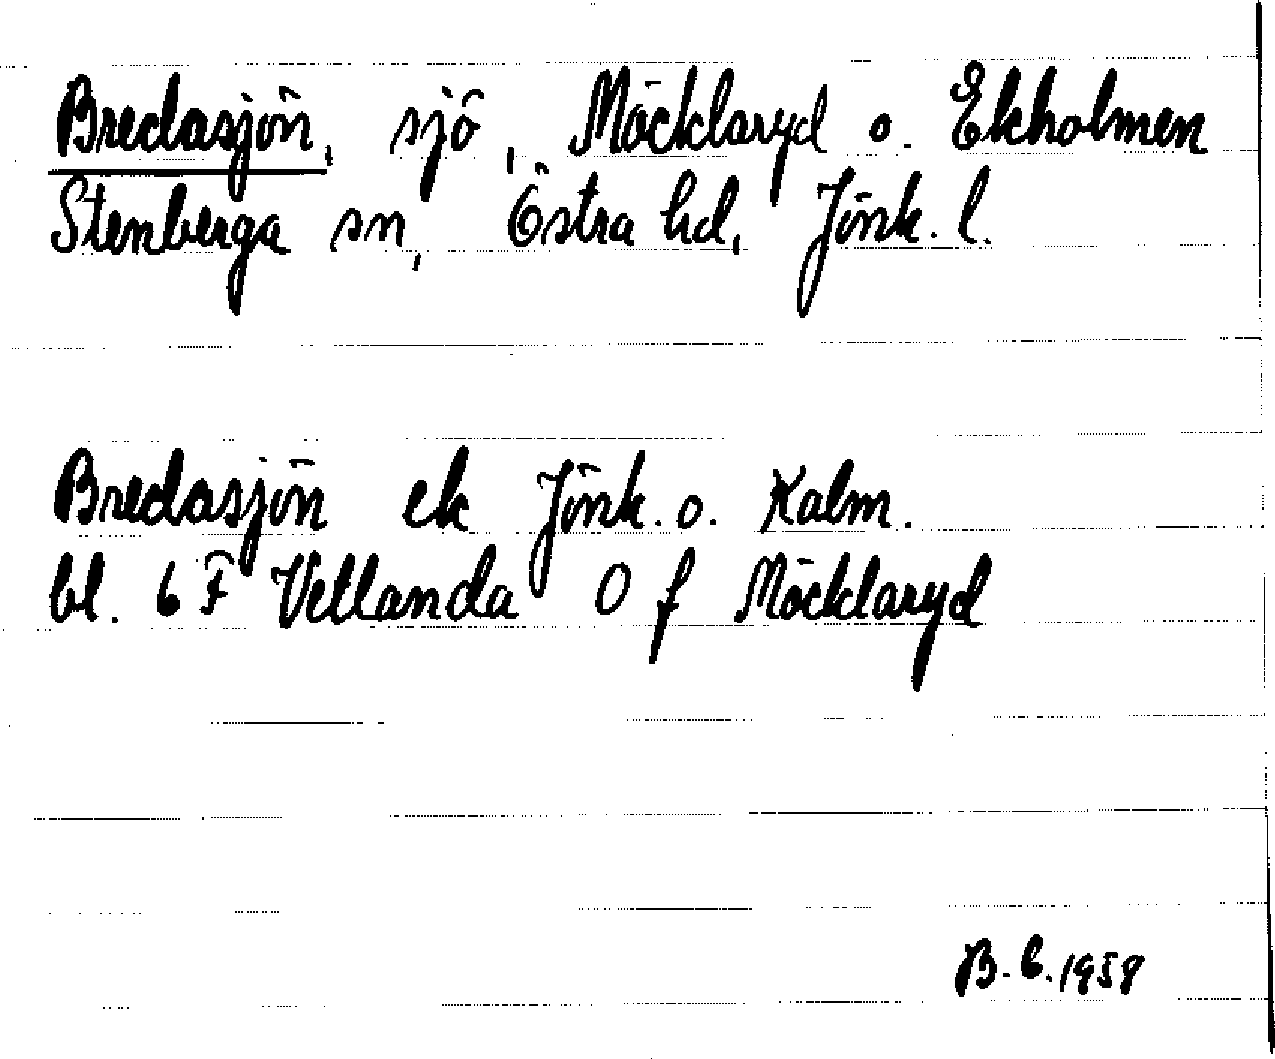 Bredasjön, sjö, Möcklaryd o. Ekholmen
Stenberga sn, Östra hd, Jönk. l.
Bredasjön ek Jönk. o. Kalm.
bl. 6 F Vetlanda O f Möcklaryd
B. E. 1958